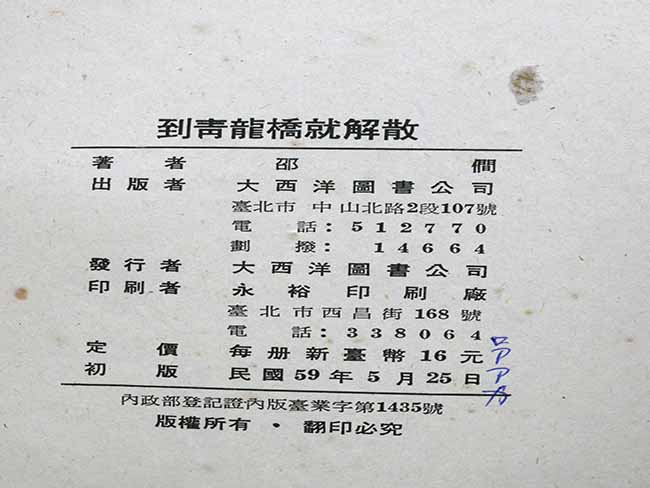 到青龍橋就解散
著者 邵僩
出版者 大西洋圖書公司
臺北市中山北路2段107號
電話：512770
劃撥：14664
發行者 大西洋圖書公司
印刷者 永裕印刷廠
臺北市西昌街168號
電話：338064
定價 每册新臺幣16元
初版 民國59年5月25日
內政部登記證內版臺業字第1435號
版權所有・翻印必究